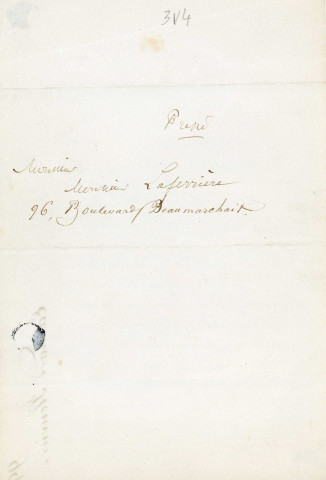 3V4
Pressé
Monsieur
Monsieur Laferrière
96, Boulevard Beaumarchais.